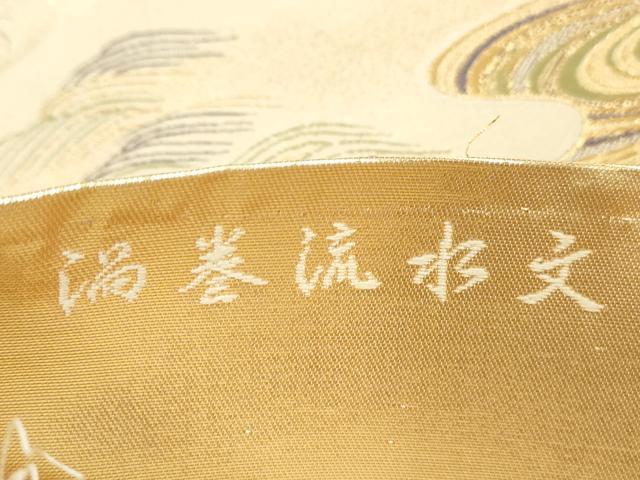 渦巻流水文